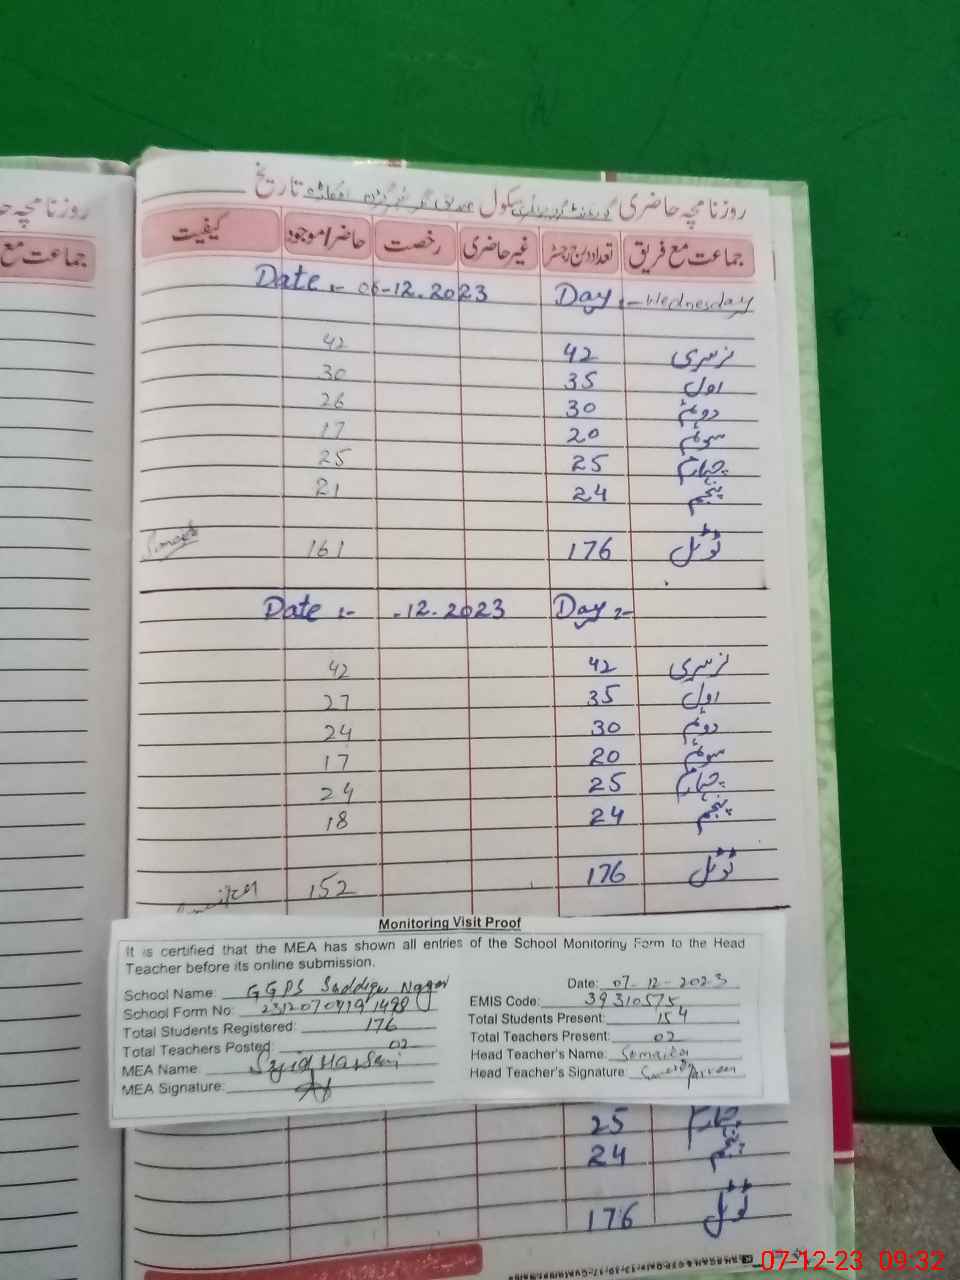 روزنامچہ حاضری گورنمنٹ گرلز پرائمری سکول صدیق نگر تاریخ
جماعت مع فریق تعداد درج رجسٹر غیر حاضری رخصت حاضر/موجود کیفیت
Date :- 06-12.2023 Day :- Wednesday
نرسری 42 42
اول 35 30
دوئم 30 26
سوئم 20 17
چہارم 25 25
پنجم 24 21
ٹوٹل 176 161
Date :- .12.2023 Day :-
نرسری 42 42
اول 35 27
دوئم 30 24
سوئم 20 17
چہارم 25 24
پنجم 24 18
ٹوٹل 176 152
Monitoring Visit Proof
It is certified that the MEA has shown all entries of the School Monitoring Form to the Head
Teacher before its online submission.
Date: 07-12-2023
School Name: GGPS Saddique Nagar EMIS Code: 39310575
School Form No: Total Students Present: 154
Total Students Registered: 176 Total Teachers Present: 02
Total Teachers Posted: 02 Head Teacher's Name: Somaira
MEA Name: Head Teacher's Signature:
MEA Signature:
چہارم 25
پنجم 24
ٹوٹل 176
روزنامچہ
جماعت مع
07-12-23 09:32